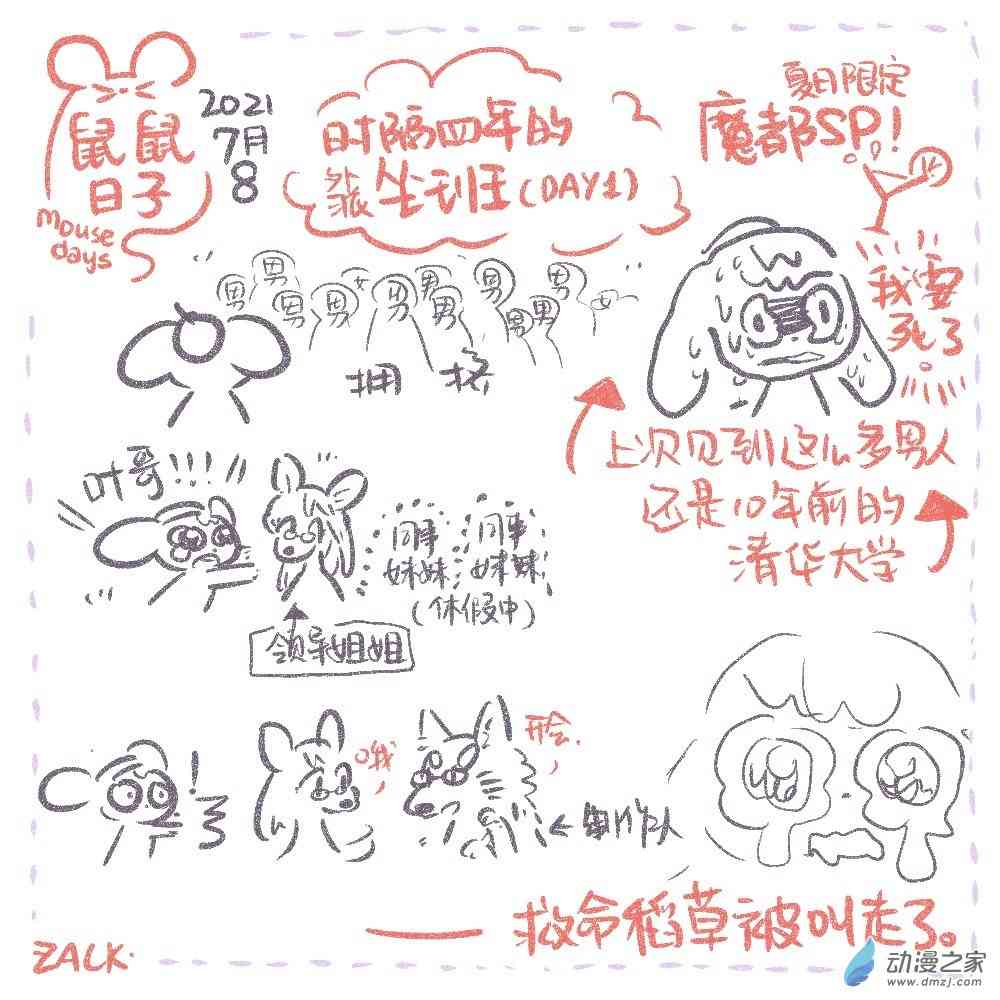 鼠鼠
日子
mouse
days
2021
7月
8
时隔四年的
坐班(DAY1)
夏日限定
魔都SP!
男 男 男 男 女 男 男 男 男 男 男 男 女
拥挤
我要
死了
上次见到这么多男人
还是10年前的
清华大学
叶哥!!!
同事
妹妹
同事
妹妹
(休假中)
领导姐姐
!
哦,
开会,
制作人
救命稻草被叫走了。
ZALK.
动漫之家
www.dmzj.com